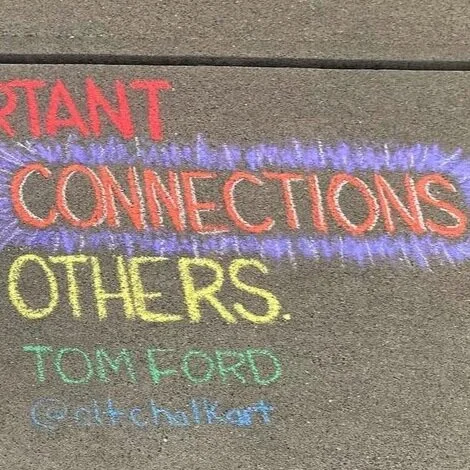 RTANT
CONNECTIONS
OTHERS.
TOM FORD
@cltchalkart